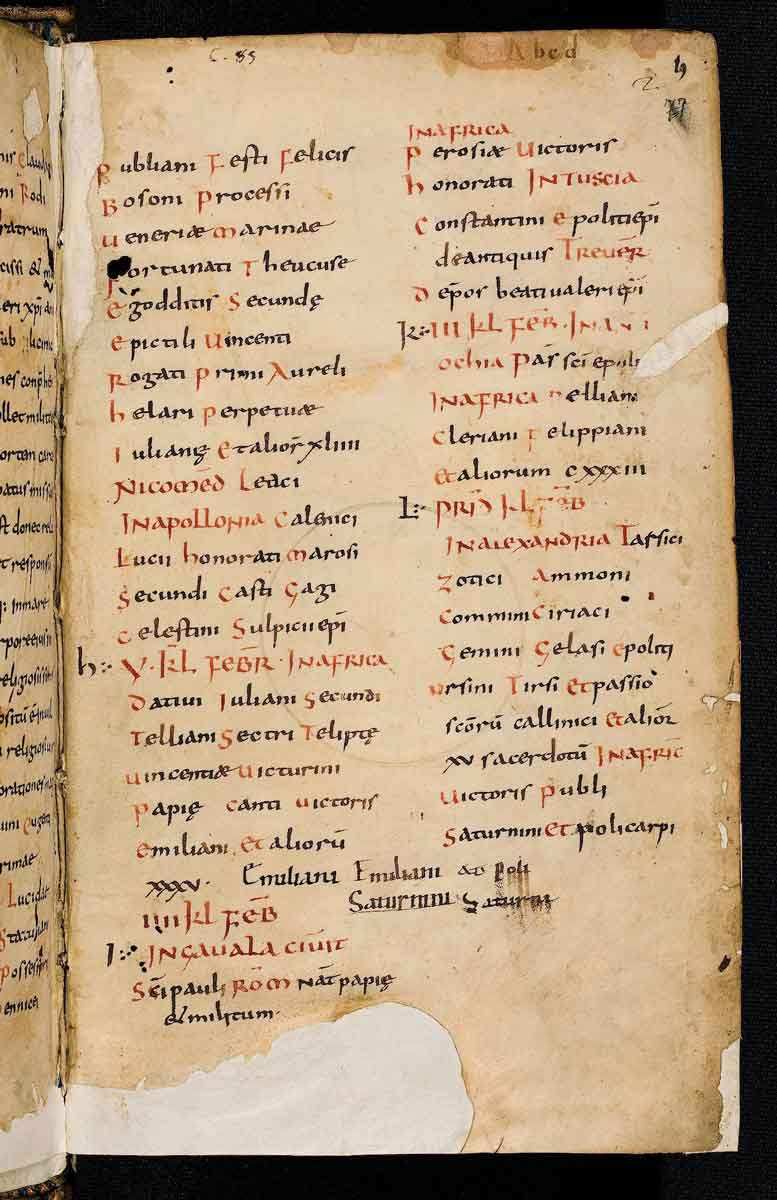 C. 85
Abcd
2
Publiani Festi Felicis
Bosoni Processi
Ueneriae Marinae
Fortunati Theucuse
Egodditis Secundę
Epictili Uincenti
Rogati Primi Aureli
helari Perpetuae
Iulianię Et alior̄ xliiii
Nicomed̄ Leuci
In apollonia Calenici
Lucii honorati Marosi
Secundi Casti Gagi
Celestini Sulpicii ep̄i
h: V. KL FEBR̄. IN AFRICA
Datiui Iuliani Secundi
Telliani Sectri Teliptę
Uincentiae Uicturini
Papię Canti Uictoris
Emiliani Et aliorū
xxxv.
IIII KL FEB̄
I: IN GAUALA CIUIT
Sc̄i pauli ROM̄ nat̄ papię
& militum.
IN AFRICA
Perosiae Uictoris
honorati IN TUSCIA
Constantini Epoliti ep̄i
de antiquis TREUER̄
Depos beati ualeri ep̄i
K: III KL FEB̄. IN AN
OCHIA Pas̄ sc̄i epoli
IN AFRICA elliani
Cleriani Felippiani
Et aliorum cxxxiii
L: PRID̄ KL FEB̄
IN ALEXANDRIA Tarsici
Zotici Ammoni
Commini Ciriaci
Gemini Gelasi Epoliti
Ursini Tirsi Et passio
sc̄orū callinici Et alior̄
xv sacerdotū IN AFRIC̄
Uictoris Publi
Saturnini Et policarpi
Emiliani Emiliani ad Poli
Saturnini Saturni